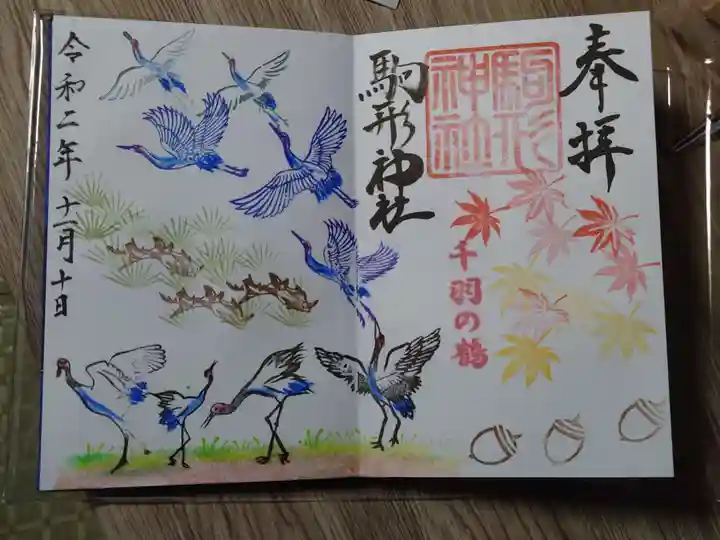 奉拝
駒形
神社
千羽の鶴
駒形神社
令和二年十一月十日